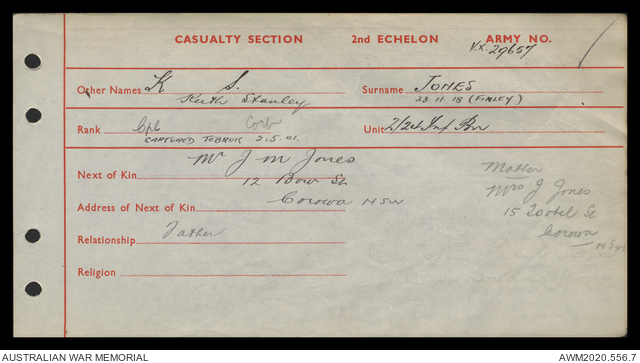 CASUALTY SECTION 2nd ECHELON ARMY NO.
VX. 29657
Other Names K S. Surname JONES
Keith Stanley 23.11.18 (FINLEY)
Rank Cpl Unit 2/24 Inf Bn
CAPTURED TOBRUK 2.5.41.
Next of Kin Mr J M Jones
12 Bow St
Address of Next of Kin Corowa NSW
Mother
Mrs J Jones
15 St
Corowa
NSW
Relationship Father
Religion
AUSTRALIAN WAR MEMORIAL AWM2020.556.7